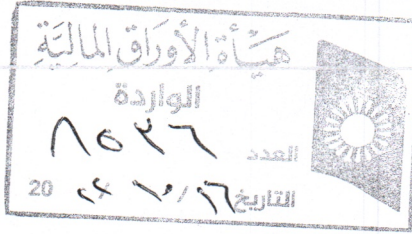 هيأة الأوراق المالية
الواردة
العدد ٨٥٣٦
التاريخ ١٦ / ١٠ / 20